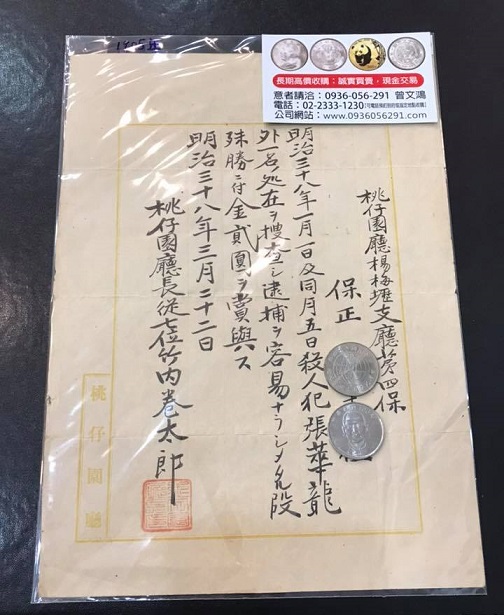 1905年
長期高價收購;誠實買賣,現金交易
意者請洽:0936-056-291 曾文鴻
電話:02-2333-1230
公司網站:www.0936056291.com
桃仔園廳楊梅壢支廳第四保
保正
明治三十八年一月一日及同月五日殺人犯張華龍
外一名処在ヲ捜査シ逮捕ヲ容易ナラシメ允段
殊勝ニ付金貳圓ヲ賞與ス
明治三十八年三月二十二日
桃仔園廳長從七位竹内巻太郎
桃仔園廳